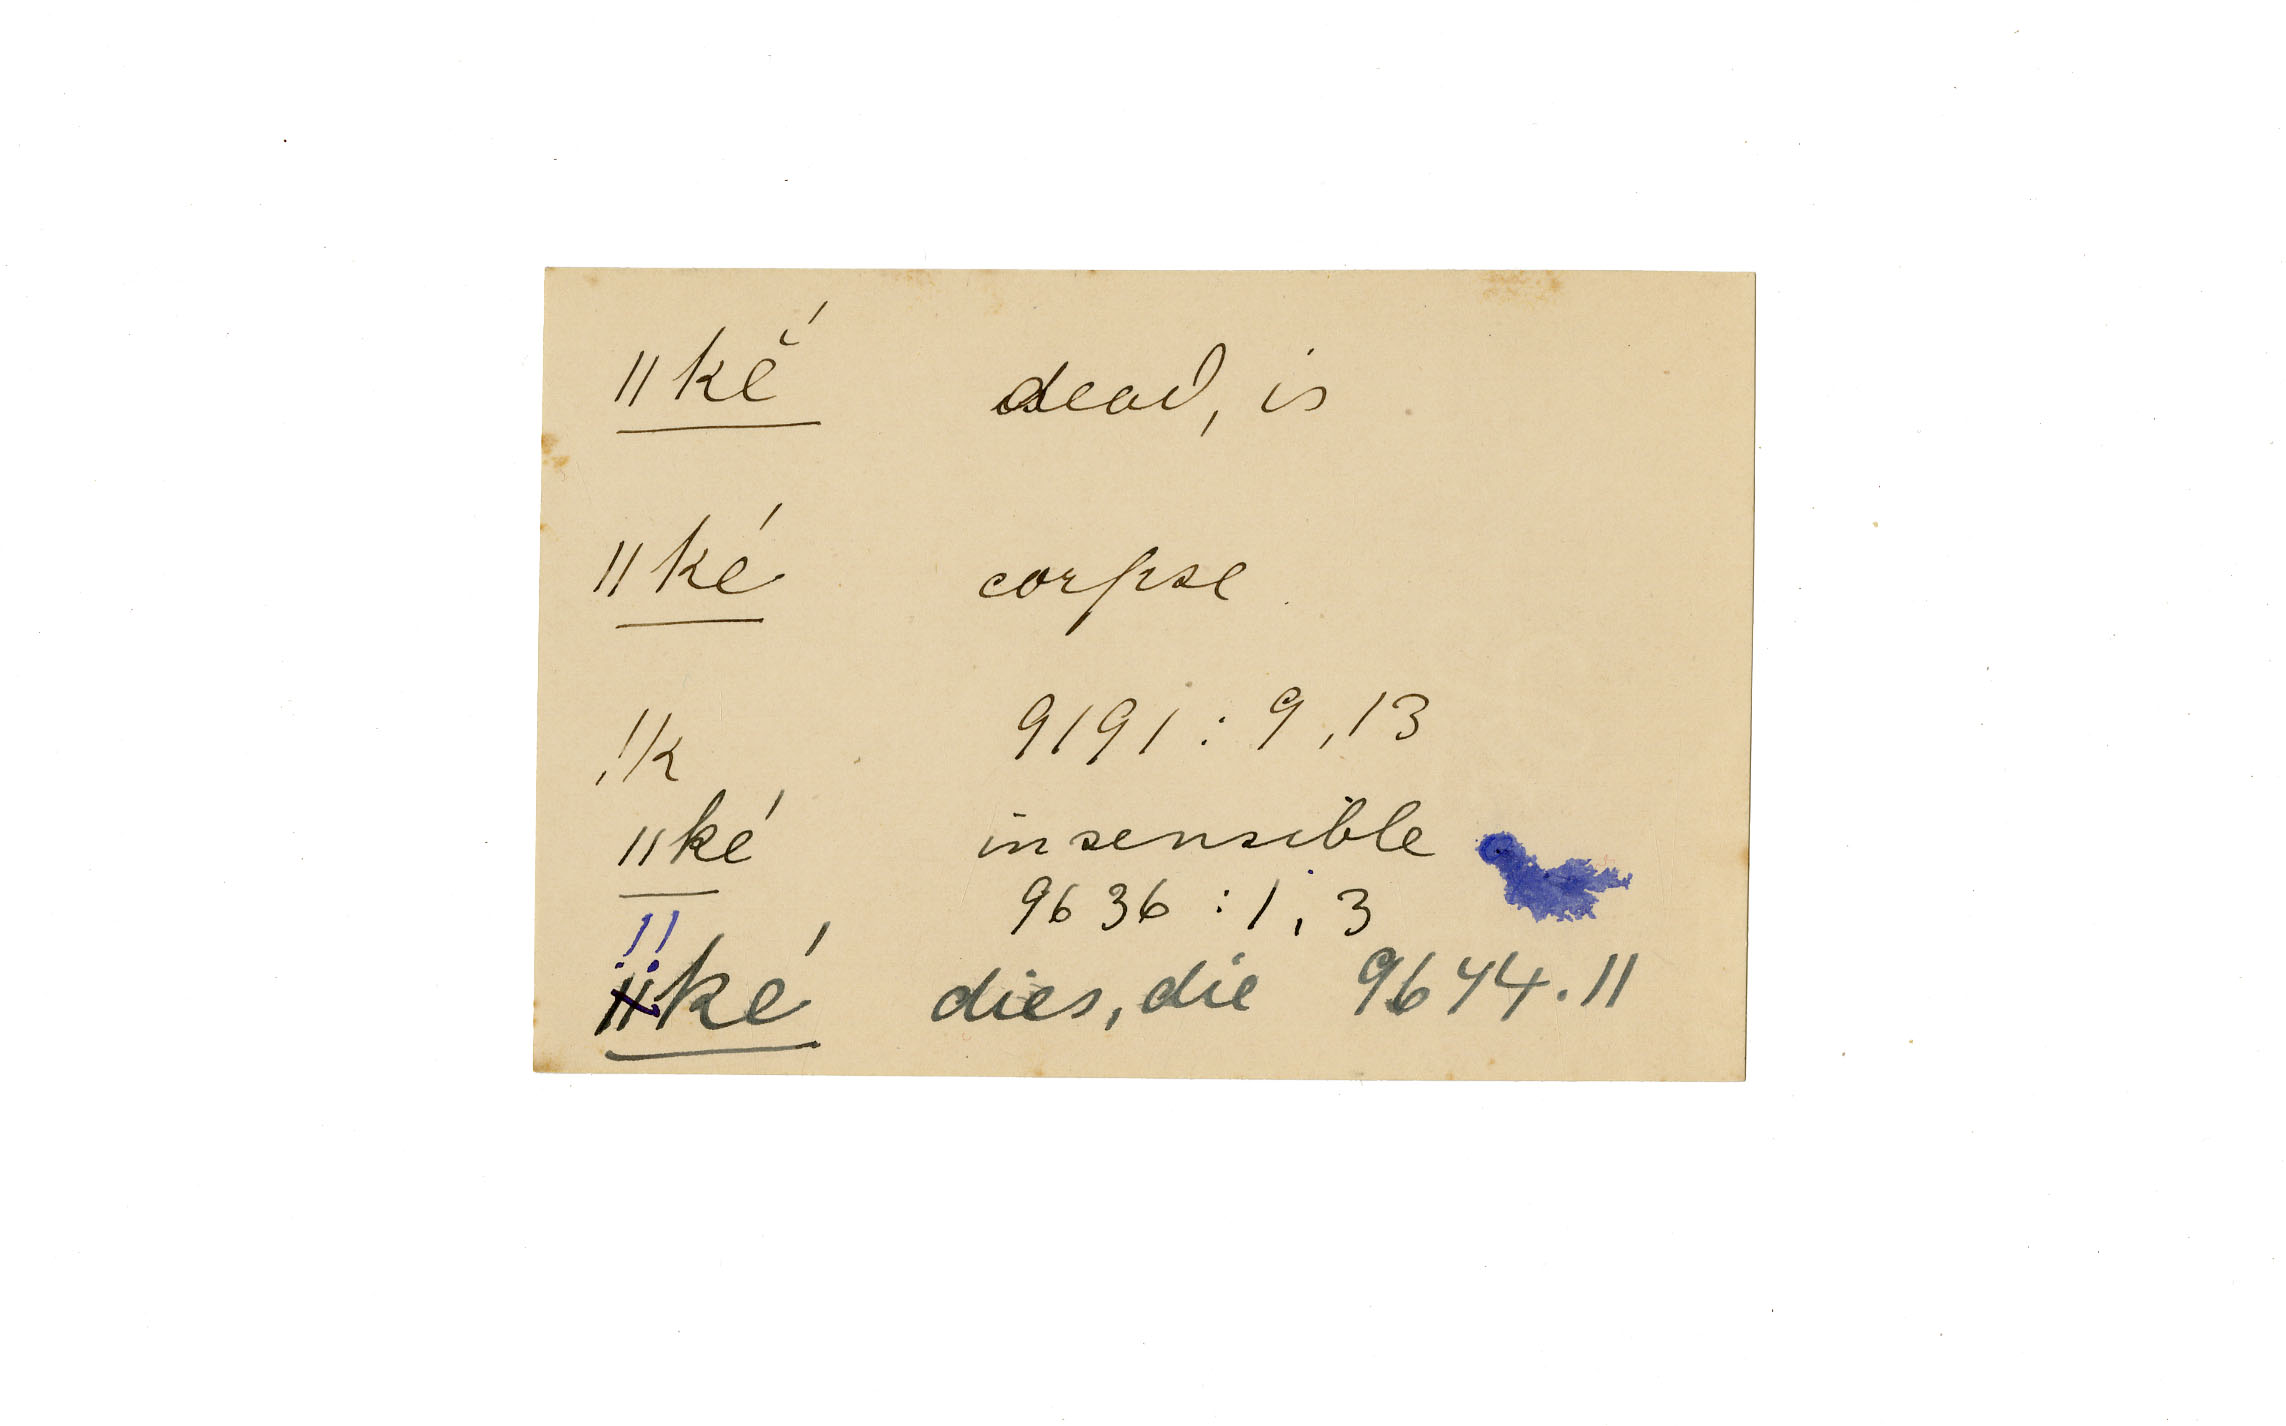 ǁkĕ́ dead, is
ǁké corpse
!/k 9191 : 9, 13
ǁké insensible
9636 : 1, 3
!!
ǁké dies, die 9644.11